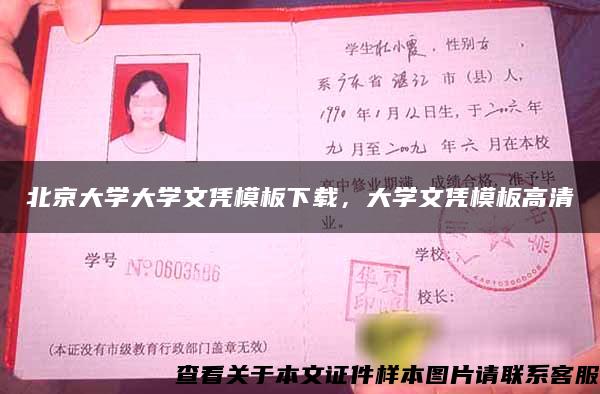 学生杜小霞，性别女，
系广东省湛江市（县）人，
1990年1月12日生，于二〇〇六年
九月至二〇〇九年六月在本校
高中修业期满，成绩合格，准予毕
业。
北京大学大学文凭模板下载，大学文凭模板高清
学号 Nº0603586
学校：
校长：
(本证没有市级教育行政部门盖章无效)
查看关于本文证件样本图片请联系客服